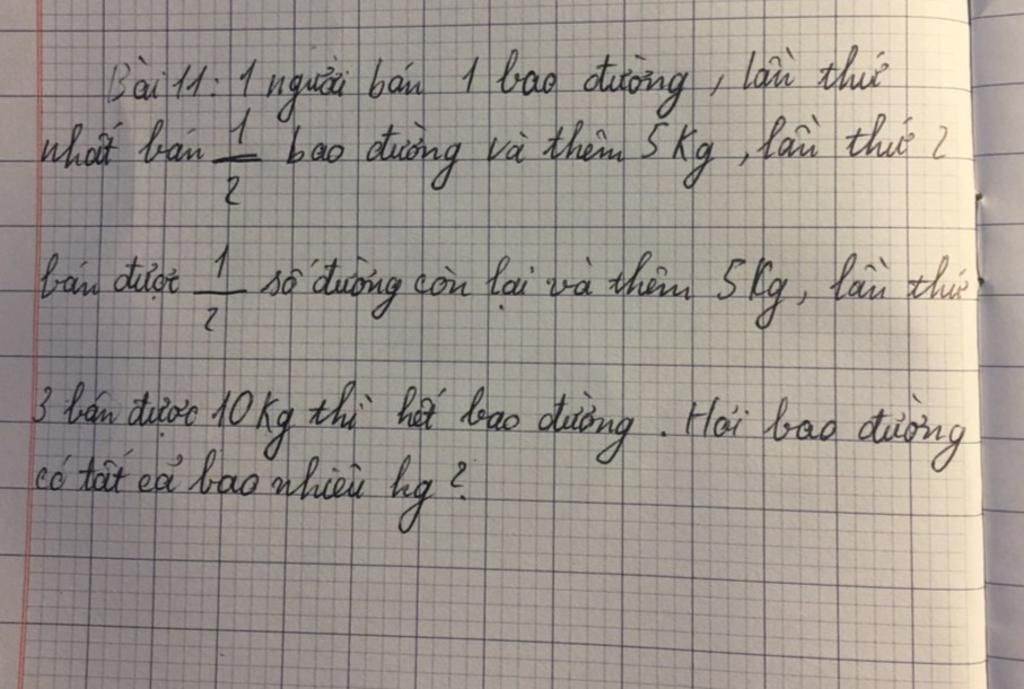 Bài 11: 1 người bán 1 bao đường, lần thứ
nhất bán 1/2 bao đường và thêm 5Kg, lần thứ 2
bán được 1/2 số đường còn lại và thêm 5Kg, lần thứ
3 bán được 10Kg thì hết bao đường. Hỏi bao đường
có tất cả bao nhiêu kg?